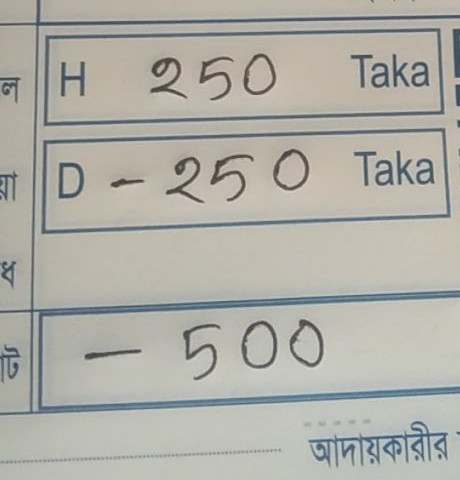 ল H 250 Taka
য়া D - 250 Taka
ধ
টি - 500
আদায়কারীর